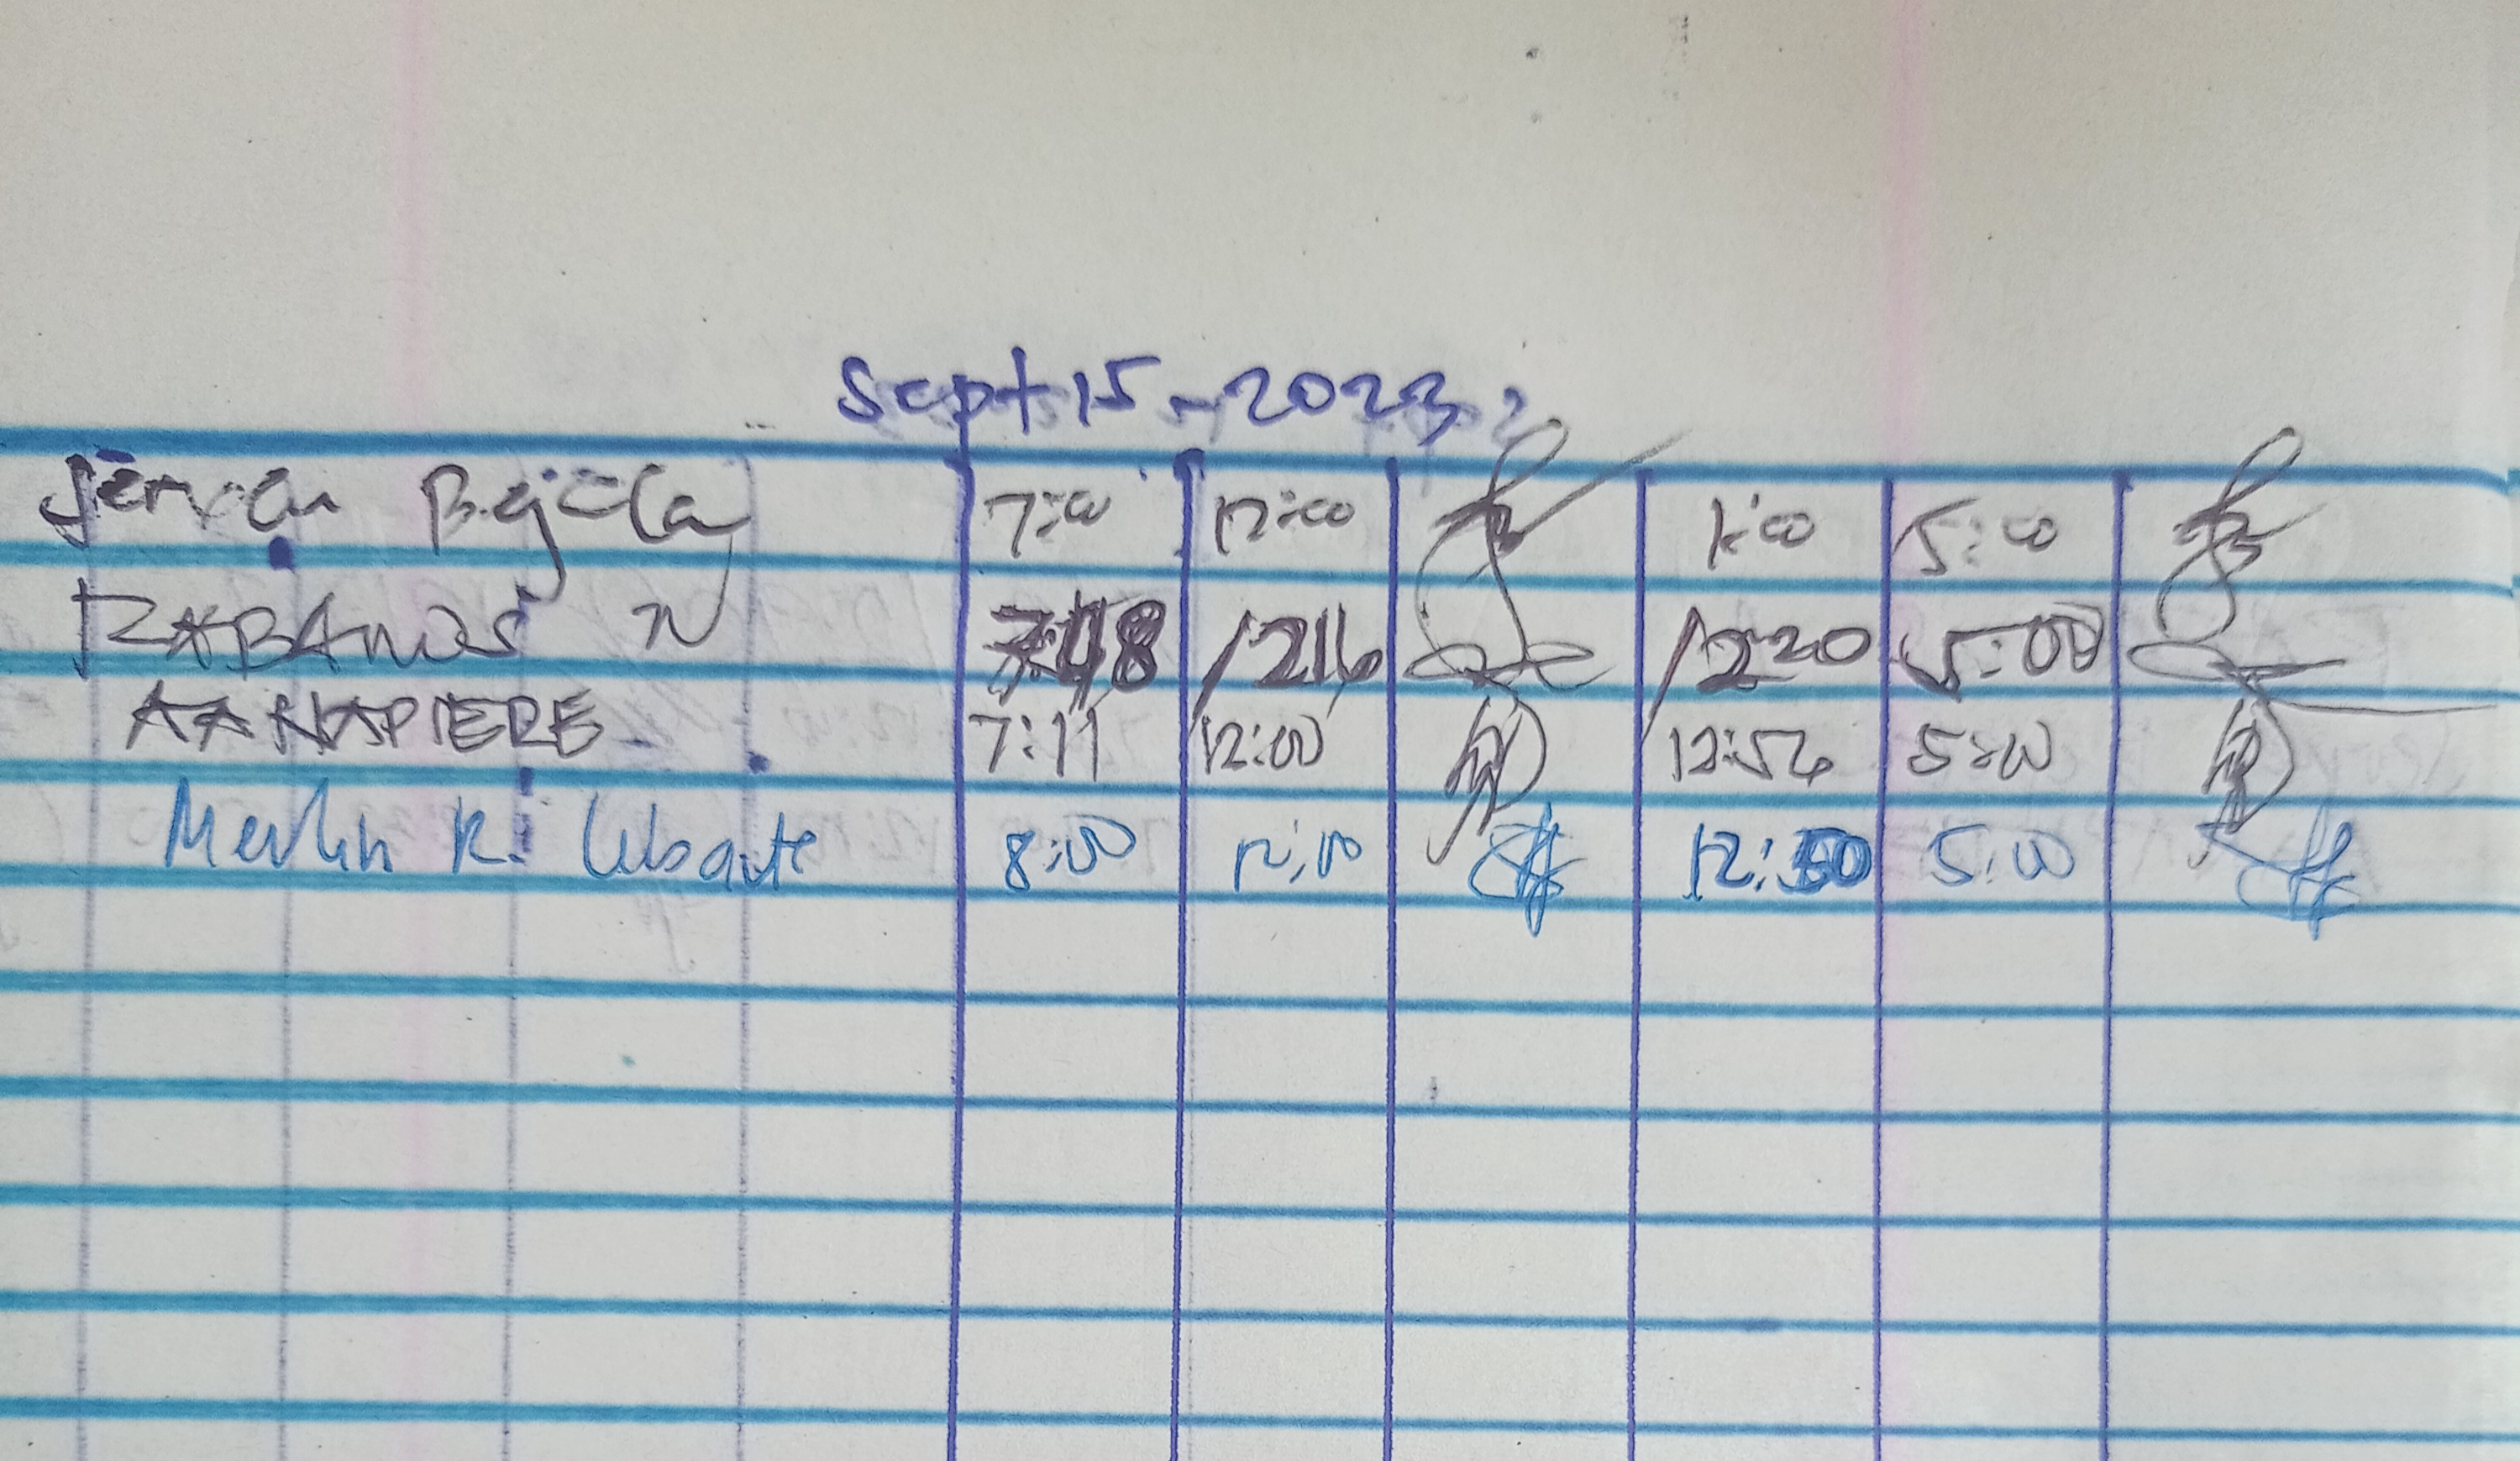 Sept 15-2023
7:00 12:00 1:00 5:00
RABANOS N 748 1216 1220 5:00
AA NAPIERE 7:11 12:00 12:56 5:00
Merlin R. 8:00 12:10 12:50 5:00